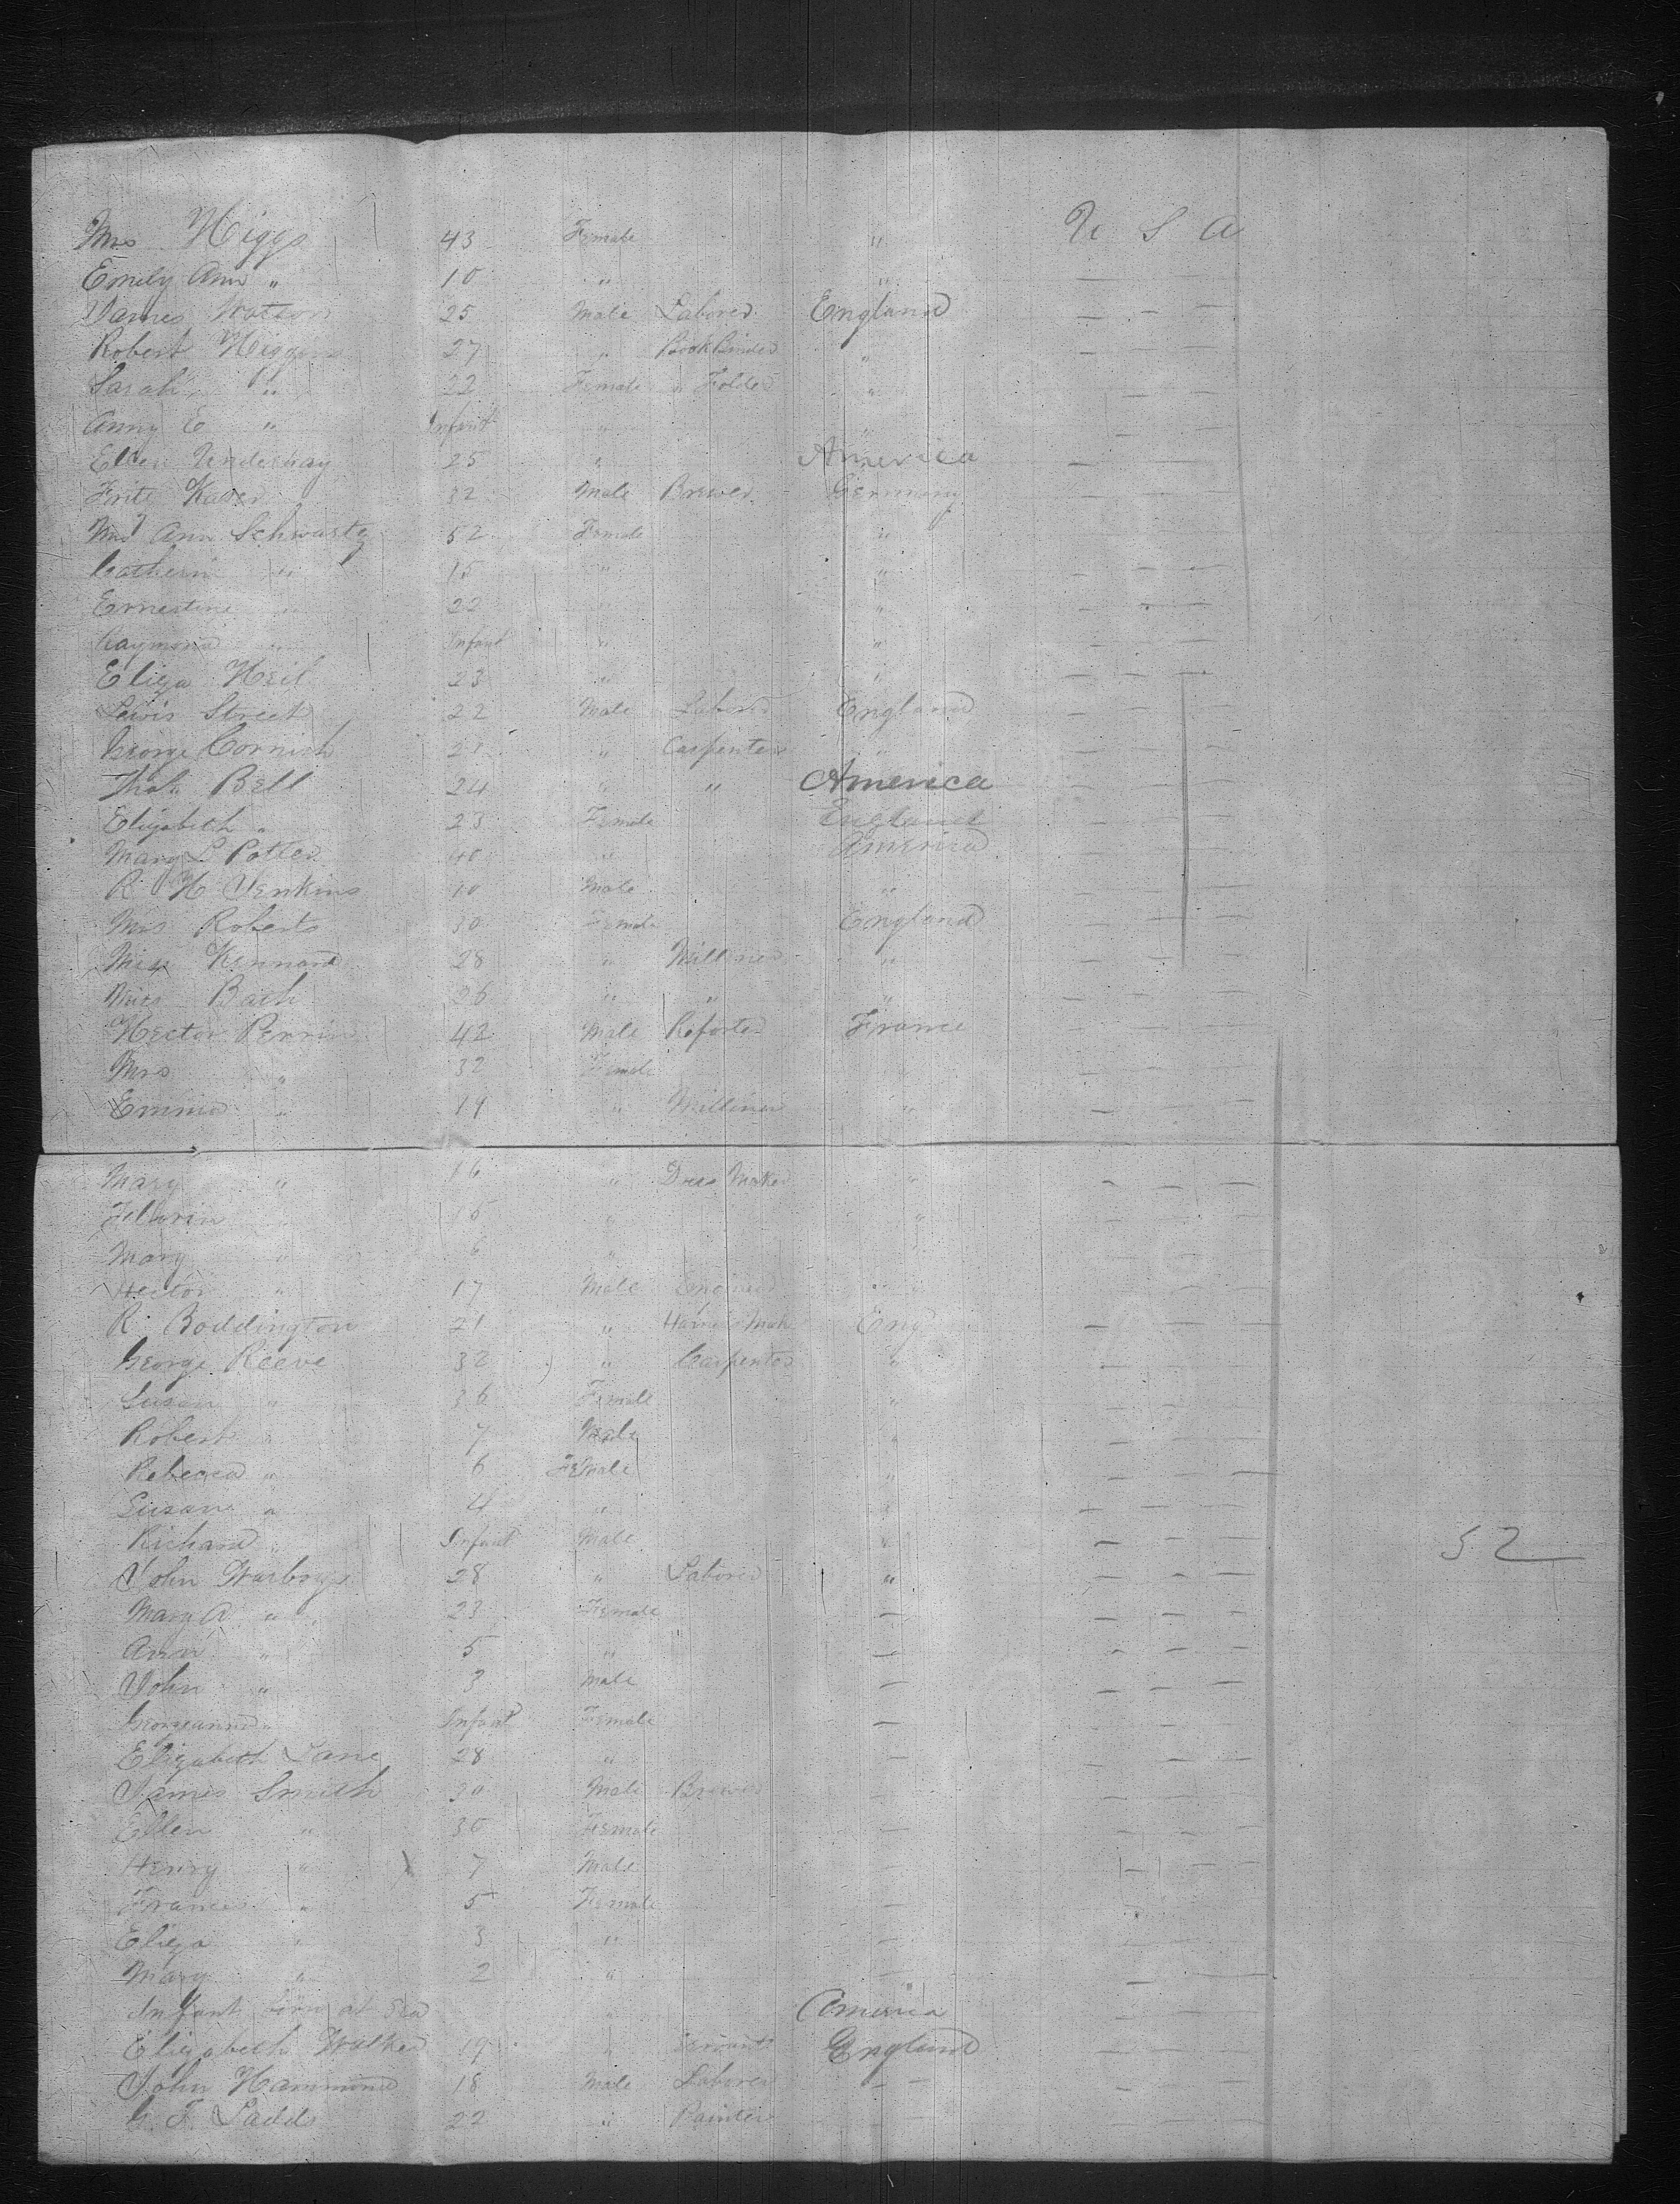 Mrs Higgs 43 Female " U S A
Emily Ann " 10 " " — — —
James Watson 25 Male Laborer England — - —
Robert Higgens 27 " Book Binder " — — —
Sarah " 22 Female " Folder " — — —
Anny E " Infant " " — — —
Ellen Underhay 25 " America — — —
Fritz Kaiser 32 Male Brewer Germany — — —
Mrs Ann Schwartz 52 Female " — — —
Cathern " 15 " " — — —
Ernestine " 22 " " — — —
Raymond " Infant " " — — —
Eliza Heil 23 " " — — —
Lewis Street 22 Male Laborer England — — —
George Cornish 21 " Carpenter " — — —
Thos. Bell 24 " " America — — —
Elizabeth " 23 Female England — — —
Mary L Potter 40 " America — — —
R H Jenkins 10 Male " — — —
Mrs Roberts 30 Female England — — —
Miss Kennard 28 " Milliner " — — —
Miss Bach 26 " " " — — —
Hector Perrin 42 Male Reporter France — — —
Mrs " 32 Female " — — —
Emma " 19 " Milliner " — — —
Mary " 16 " Dress Maker " — — —
" 15 " " — — —
Mary " 6 " " — — —
Hector " 17 Male Engineer " — — —
R. Boddington 21 " Harness Mak Eng — — —
George Reeve 32 " Carpenter " — — —
Susan " 36 Female " — — —
Robert " 7 Male " — — —
Rebecca " 6 Female " — — —
Susan " 4 " " — — —
Richard " Infant Male " — — — 52
John Warboys 28 " Laborer " — — —
Mary A " 23 Female — — — —
Ann " 5 " — — — —
John " 3 Male — — — —
Georgeanna " Infant Female — — — —
Elizabeth Lane 28 " — — — —
James Smith 30 Male Brewer — — — —
Ellen " 30 Female — — — —
Henry " 7 Male — — — —
Frances " 5 Female — — — —
Eliza " 3 " — — — —
Mary " 2 " — — — —
Infant born at Sea " America — — —
Elizabeth Walker 19 " Servant England — — —
John Hammond 18 Male Laborer — — — — —
G. F. Ladds 22 " Painter — — — —